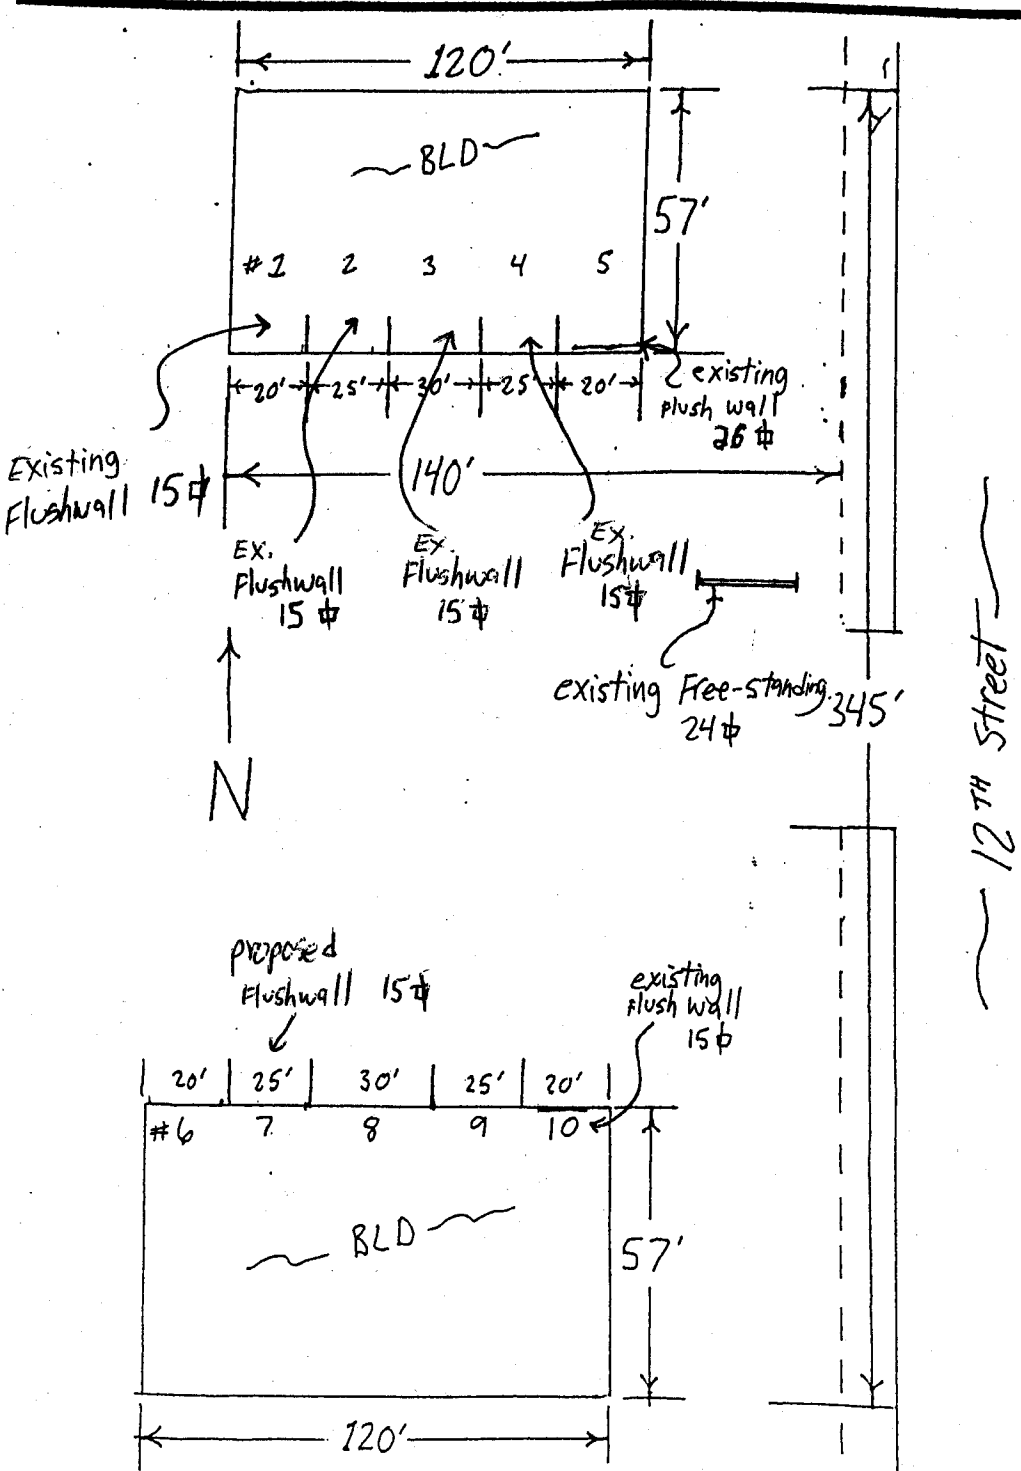 120'
BLD
57'
#1 2 3 4 5
20' 25' 30' 25' 20'
existing
flush wall
26 ⌷
140'
Existing
Flushwall 15 ⌷
Ex.
Flushwall
15 ⌷
Ex.
Flushwall
15 ⌷
Ex.
Flushwall
15 ⌷
existing Free-standing
24 ⌷
345'
12TH Street
N
proposed
Flushwall 15 ⌷
existing
flush wall
15 ⌷
20' 25' 30' 25' 20'
#6 7 8 9 10
BLD
57'
120'